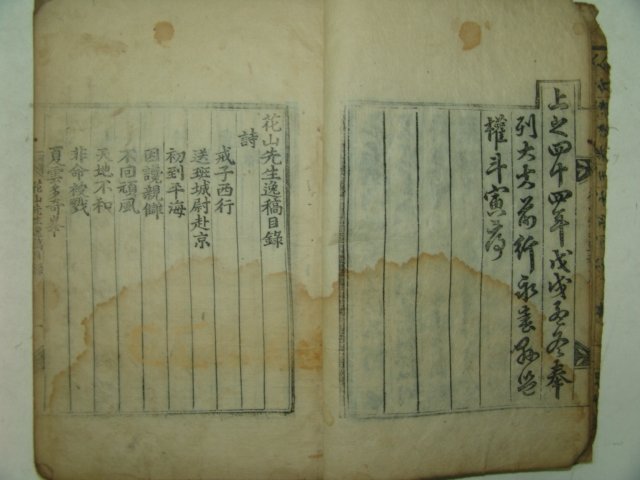 上之四十四年戊戌孟冬奉
列大夫前行永春縣監
權斗寅序
花山先生逸稿目錄
詩
戒子西行
送班城尉赴京
初到平海
因謾親御
不回頑風
天地不和
非命被戮
夏雲多奇峯